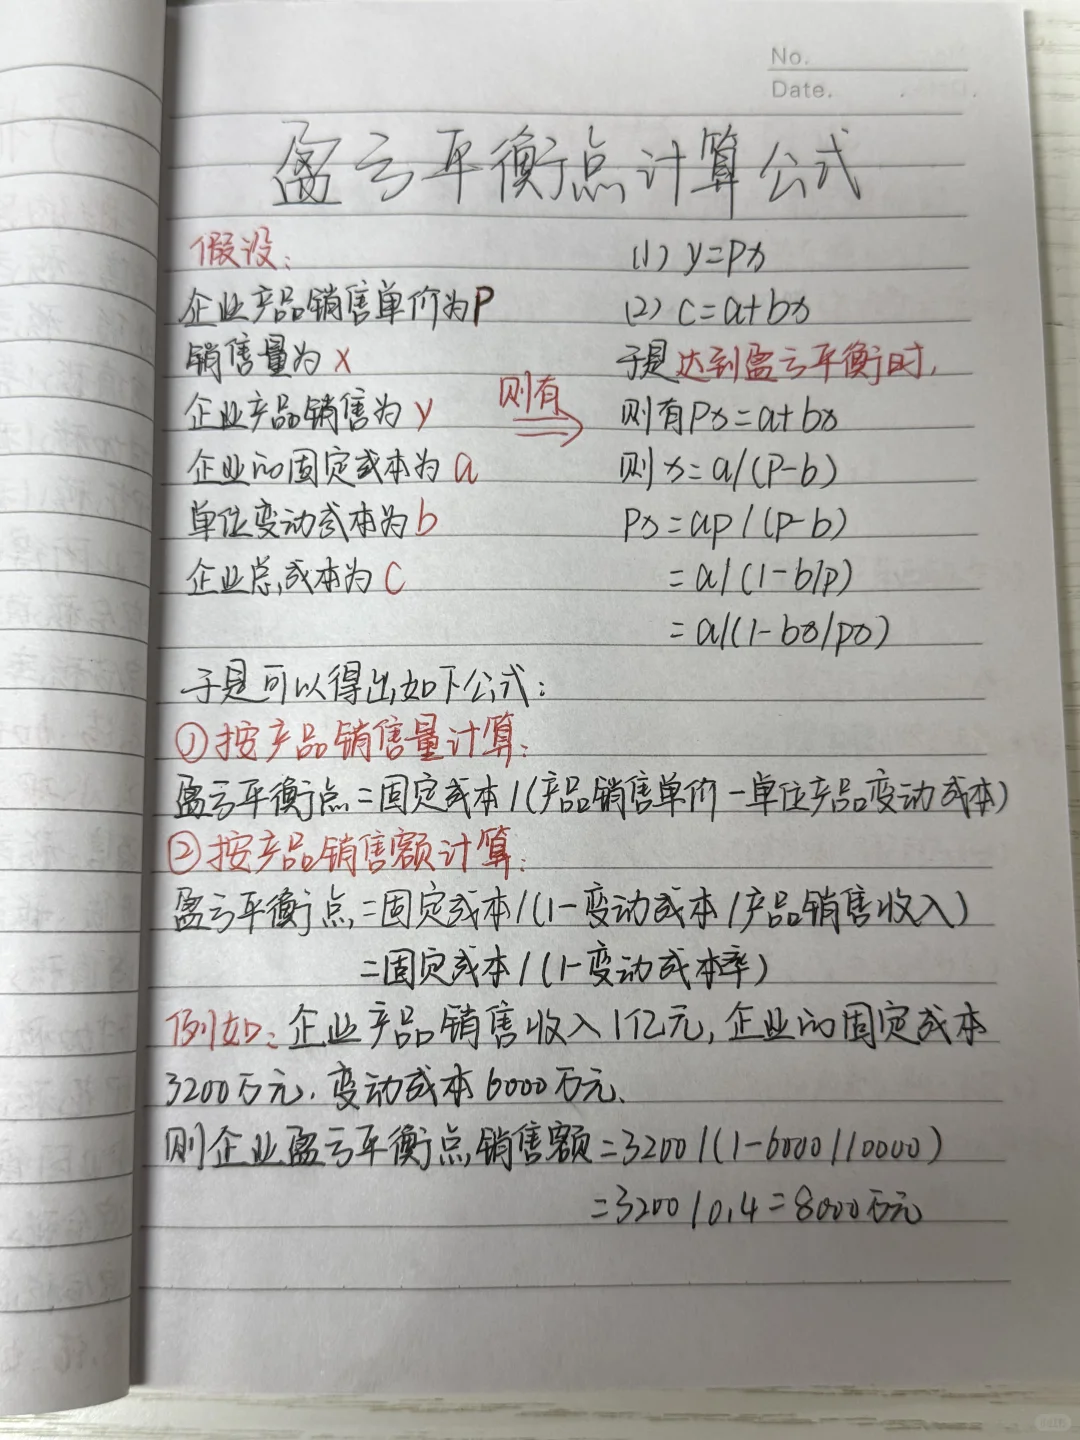 No.
Date.
盈亏平衡点计算公式
假设:
企业产品销售单价为P
销售量为x
企业产品销售为y
企业的固定成本为a
单位变动成本为b
企业总成本为C
则有
(1) y=px
(2) c=a+bx
于是达到盈亏平衡时,
则有Px=a+bx
则x=a/(P-b)
Px=ap/(p-b)
=a/(1-b/p)
=a/(1-bx/px)
于是可以得出如下公式:
①按产品销售量计算:
盈亏平衡点=固定成本/(产品销售单价-单位产品变动成本)
②按产品销售额计算:
盈亏平衡点=固定成本/(1-变动成本/产品销售收入)
=固定成本/(1-变动成本率)
例如:企业产品销售收入1亿元,企业的固定成本
3200万元.变动成本6000万元.
则企业盈亏平衡点销售额=3200/(1-6000/10000)
=3200/0.4=8000万元